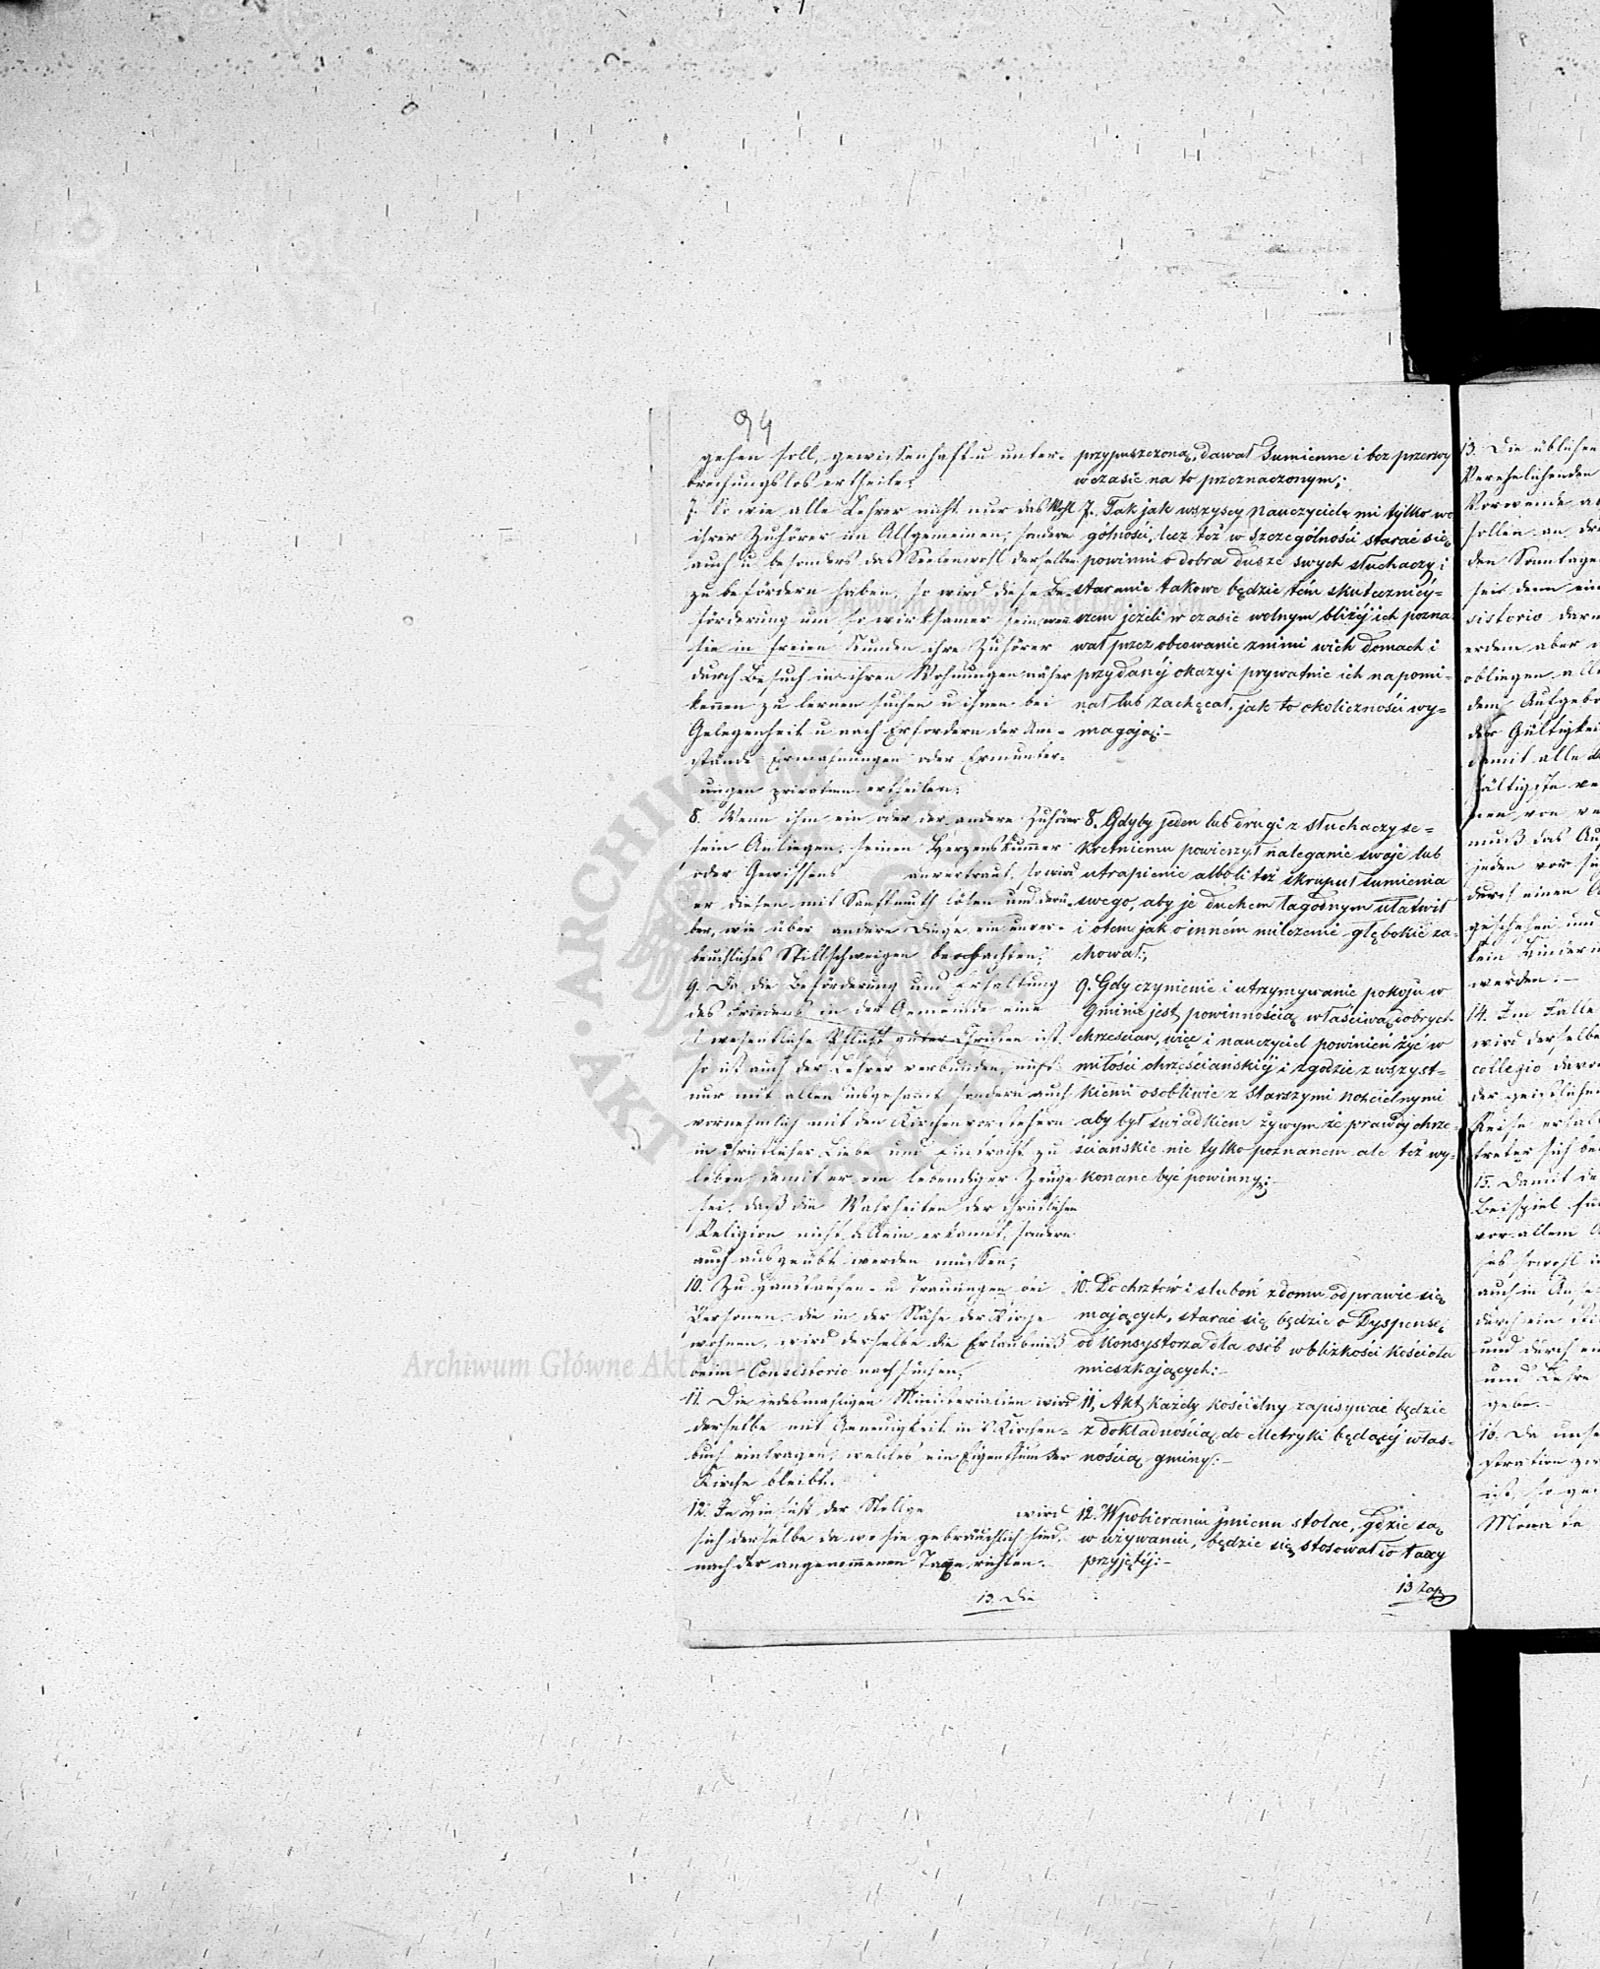 94
gehen soll, gewissenhaft u unter-
brechungslos ertheile;
7. So wie alle Lehrer nicht nur das Wohl
ihrer Zuhörer im Allgemeinen, sondern
auch u besonders das Seelenwohl derselben
zu befördern haben, so wird diese Be-
förderung um so wirksamer sein, wenn
sie in freien Stunden ihre Zuhörer
durch Besuch in ihren Wohnungen näher
kennen zu lernen suchen u ihnen bei
Gelegenheit u nach Erfordern der Um-
stände Ermahnungen oder Ermunter-
ungen privatim ertheilen;
8. Wenn ihm ein oder der andere Zuhörer
sein Anliegen, seinen Herzenskummer
oder Gewissens anvertraut, so wird
er diesen mit Sanftmuth lösen und darü-
ber, wie über andere Dinge ein unver-
brüchliches Stillschweigen beobachten;
9. Da die Beförderung und Erhaltung
des Friedens in der Gemeinde eine
wesentliche Pflicht guter Christen ist,
so ist auch der Lehrer verbunden, nicht
nur mit allen insgesammt sondern auch
vornehmlich mit den Kirchenvorstehern
in christlicher Liebe und Eintracht zu
leben, damit er ein lebendiger Zeuge
sei, daß die Wahrheiten der christlichen
Religion nicht allein erkannt, sondern
auch ausgeübt werden müssen;
10. Zu Haustaufen u Trauungen bei
Personen, die in der Nähe der Kirche
wohnen, wird derselbe die Erlaubniß
beim Consistorio nachsuchen;
11. Die jedesmahligen Ministerialien wird
derselbe mit Genauigkeit in's Kirchen-
buch eintragen, welches ein Eigenthum der
Kirche bleibt.
12. In Hinsicht der Stollge wird
sich derselbe da wo sie gebräuchlich sind,
nach der angenommenen Taxe richten.
13. Die
przypuszczoną, dawał Sumienne i bez przerwy
wczasie na to przeznaczonym;
7. Tak jak wszyscy nauczyciele ni tylko wo
gólności, lecz też w szczególności starać się
powinni o dobra dusze swych słuchaczy i
staranie takowe będzie tém skutecznicy-
szem jeżeli w czasie wolnym bliżéj ich pozna
wał przez obcowanie z nimi wich domach i
przy danéj okazyi prywatnie ich napomi-
nał lub zachęcał, jak to okoliczności wy-
magają:-
8. Gdyby jeden lub drugi z słuchaczy se-
kretniemu powierzył naleganie swoje lub
utrapienie alboli też skrupuł sumienia
swego, aby je duchem łagodnym ułatwił
i otem jak o inném milczenie głębokie za-
chował;
9. Gdy czynienie i utrzymywanie pokoju w
Gminie jest powinnością właściwą dobrych
chrześcian, więc i nauczyciel powinien żyć w
miłości chrześciańskiéj i zgodzie z wszyst-
kiemi osobliwie z Starszymi kościelnymi
aby był świadkiem żywym że prawdy chrze-
ściańskie nie tylko poznanem ale też wy-
konane być powinny;-
10. Do chrztów i slubów z domu odprawić się
mających, starać się będzie o Dyspensę
od Konsystorza dla osób wblizkości kościoła
mieszkających:-
11, Akt każdy kościelny zapisywać będzie
z dokładnością do Metryki będącéj włas-
nością gminy:-
12. W pobieraniu jmienu stolae, gdzie są
w używaniu, będzie się stosował do taxy
przyjętéj:-
13 Zap
13. Die üblichen
Verehelichenden
Vorwende
sollen an
den Sonntage
sei denn
sistorio
erdem aber
obliegen
dem Aufgebo
der Gültigkei
damit alle
fältigste
nen, von
muß das Au
jeden vor
durch einen
geschehen und
kein Hinder
werden.-
14. Im Falle
wird derselbe
collegio davo
der geistlichen
Reise
treter sich
15. Damit
Beispiel
vor allem
sowohl
auch in
durch ein
und durch
und Lehre
gebe.-
16. Da
ist, so
Mona te
Archiwum Główne Akt Dawnych
Archiwum Główne Akt Dawnych